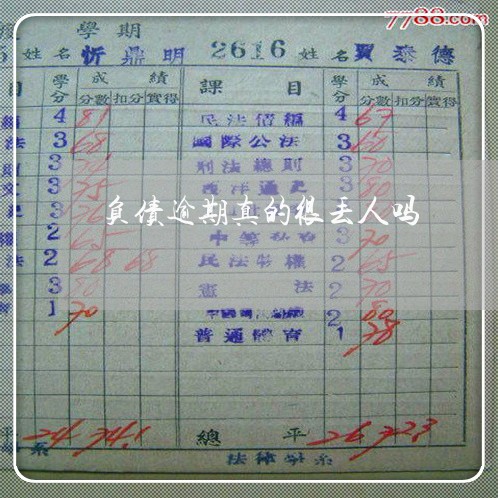 7788.com
學期
姓名 忻鼎明 2616 姓名 賈泰德
目 學分 成績 課目 學分 成績
分數 扣分 實得 分數 扣分 實得
4 81 民法債編 4 67
法 3 68 國際公法 3 60
3 刑法總則 3 70
3 75 西洋通史 3 80
負債逾期真的很丢人吗
3 76
2 65 3 70
法 2 68 68 民法物權 2 65
3 80 憲法 2 70
1 70 2 80
普通體育 1 78
平 24 74.1 總平 26 72.3
系 法律學系